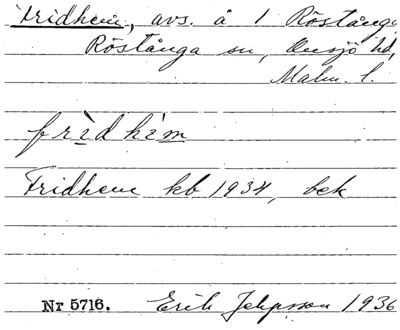 Fridhem, avs. å 1 Röstånga
Röstånga sn, Onsjö hd,
Malm. l.
fridhèm
Fridhem kb 1934, bek
Nr 5716. Erik Jeppsson 1936